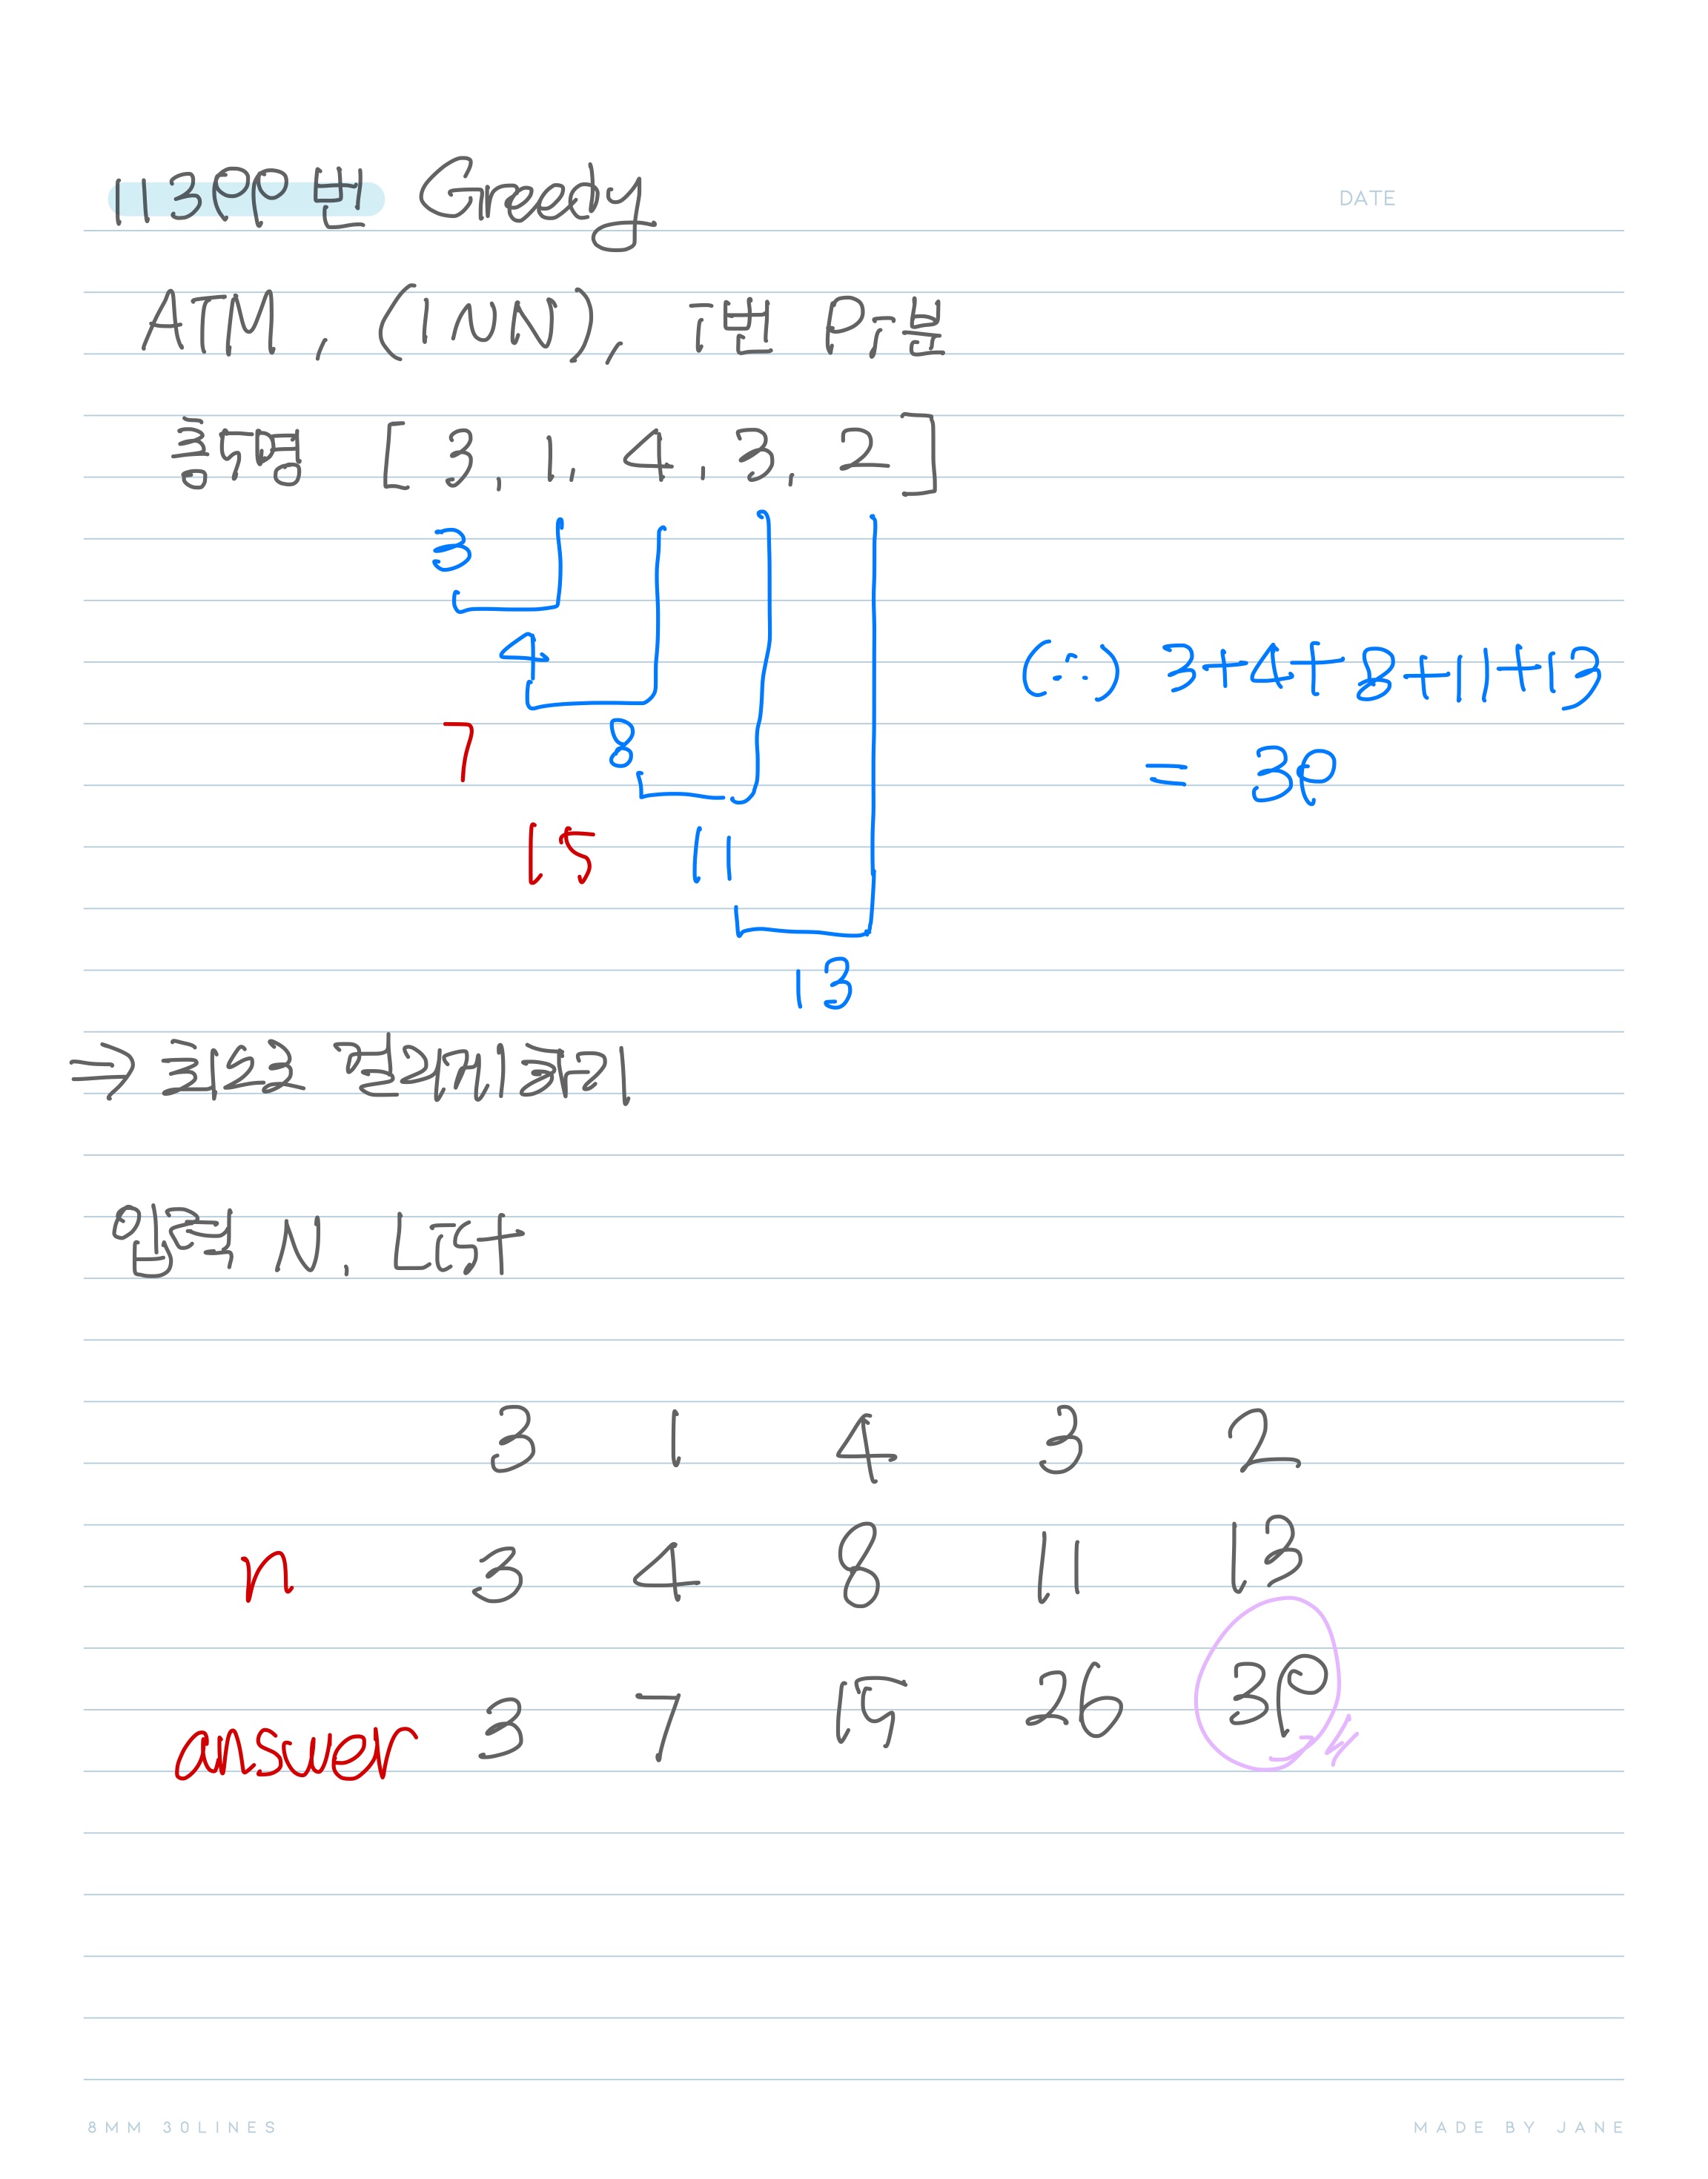 11399번 Greedy
DATE
ATM, (1~N), i번 Pi분
줄의명 [3, 1, 4, 3, 2]
3
4
(∴) 3+4+8+11+13
7 8
= 39
15 11
13
⇒ 최소로 만들게 하기
입력 N, List
3 1 4 3 2
n 3 4 8 11 13
answer 3 7 15 26 39
8MM 30LINES
MADE BY JANE